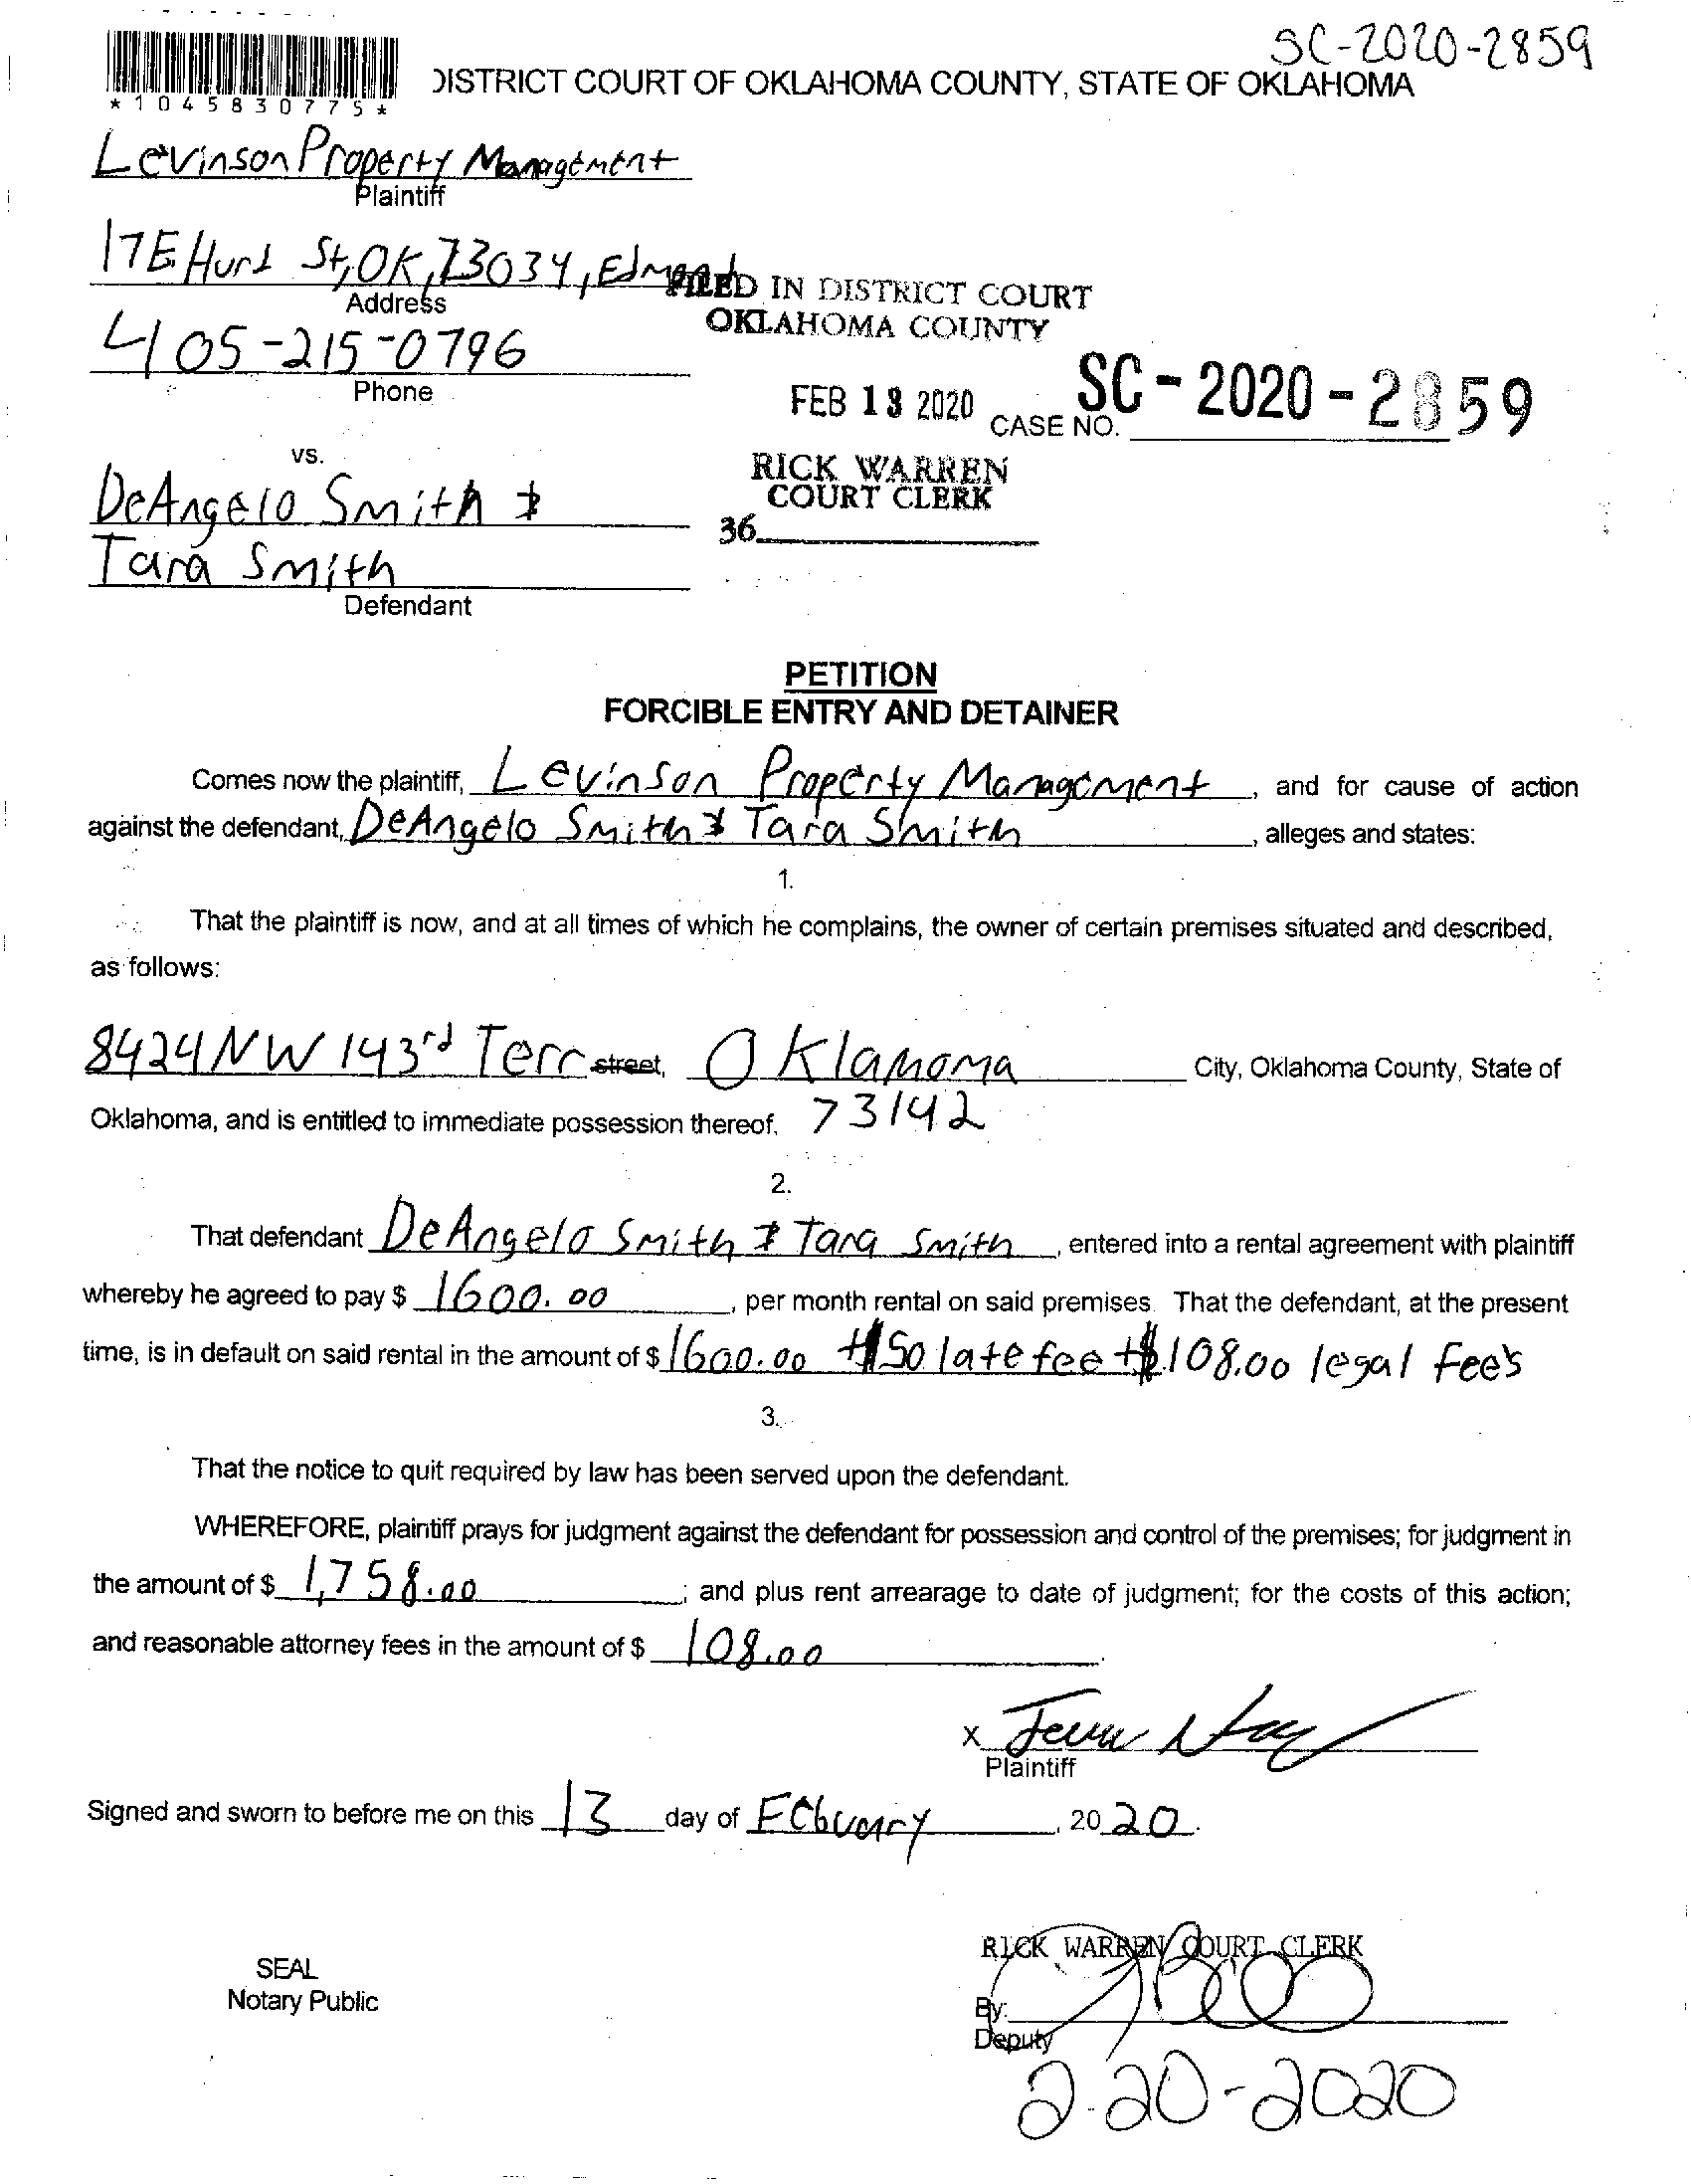 SC-2020-2859
DISTRICT COURT OF OKLAHOMA COUNTY, STATE OF OKLAHOMA
*1045830775*
Levinson Property Management
Plaintiff
17 E Hurd St, OK, 73034, Edmond
Address
FILED IN DISTRICT COURT
OKLAHOMA COUNTY
405-215-0796
Phone
FEB 13 2020
CASE NO. SC-2020-2859
vs.
RICK WARREN
COURT CLERK
DeAngelo Smith &
36
Tara Smith
Defendant
PETITION
FORCIBLE ENTRY AND DETAINER
Comes now the plaintiff, Levinson Property Management, and for cause of action
against the defendant, DeAngelo Smith & Tara Smith, alleges and states:
1.
That the plaintiff is now, and at all times of which he complains, the owner of certain premises situated and described,
as follows:
8424 NW 143rd Terr street, Oklahoma City, Oklahoma County, State of
Oklahoma, and is entitled to immediate possession thereof. 73142
2.
That defendant DeAngelo Smith & Tara Smith, entered into a rental agreement with plaintiff
whereby he agreed to pay $ 1600.00, per month rental on said premises. That the defendant, at the present
time, is in default on said rental in the amount of $ 1600.00 +$50 late fee +$108.00 legal fee's
3.
That the notice to quit required by law has been served upon the defendant.
WHEREFORE, plaintiff prays for judgment against the defendant for possession and control of the premises; for judgment in
the amount of $ 1,758.00; and plus rent arrearage to date of judgment; for the costs of this action;
and reasonable attorney fees in the amount of $ 108.00.
X
Plaintiff
Signed and sworn to before me on this 13 day of Febuary, 2020.
RICK WARREN COURT CLERK
SEAL
Notary Public
By:
Deputy
2-20-2020